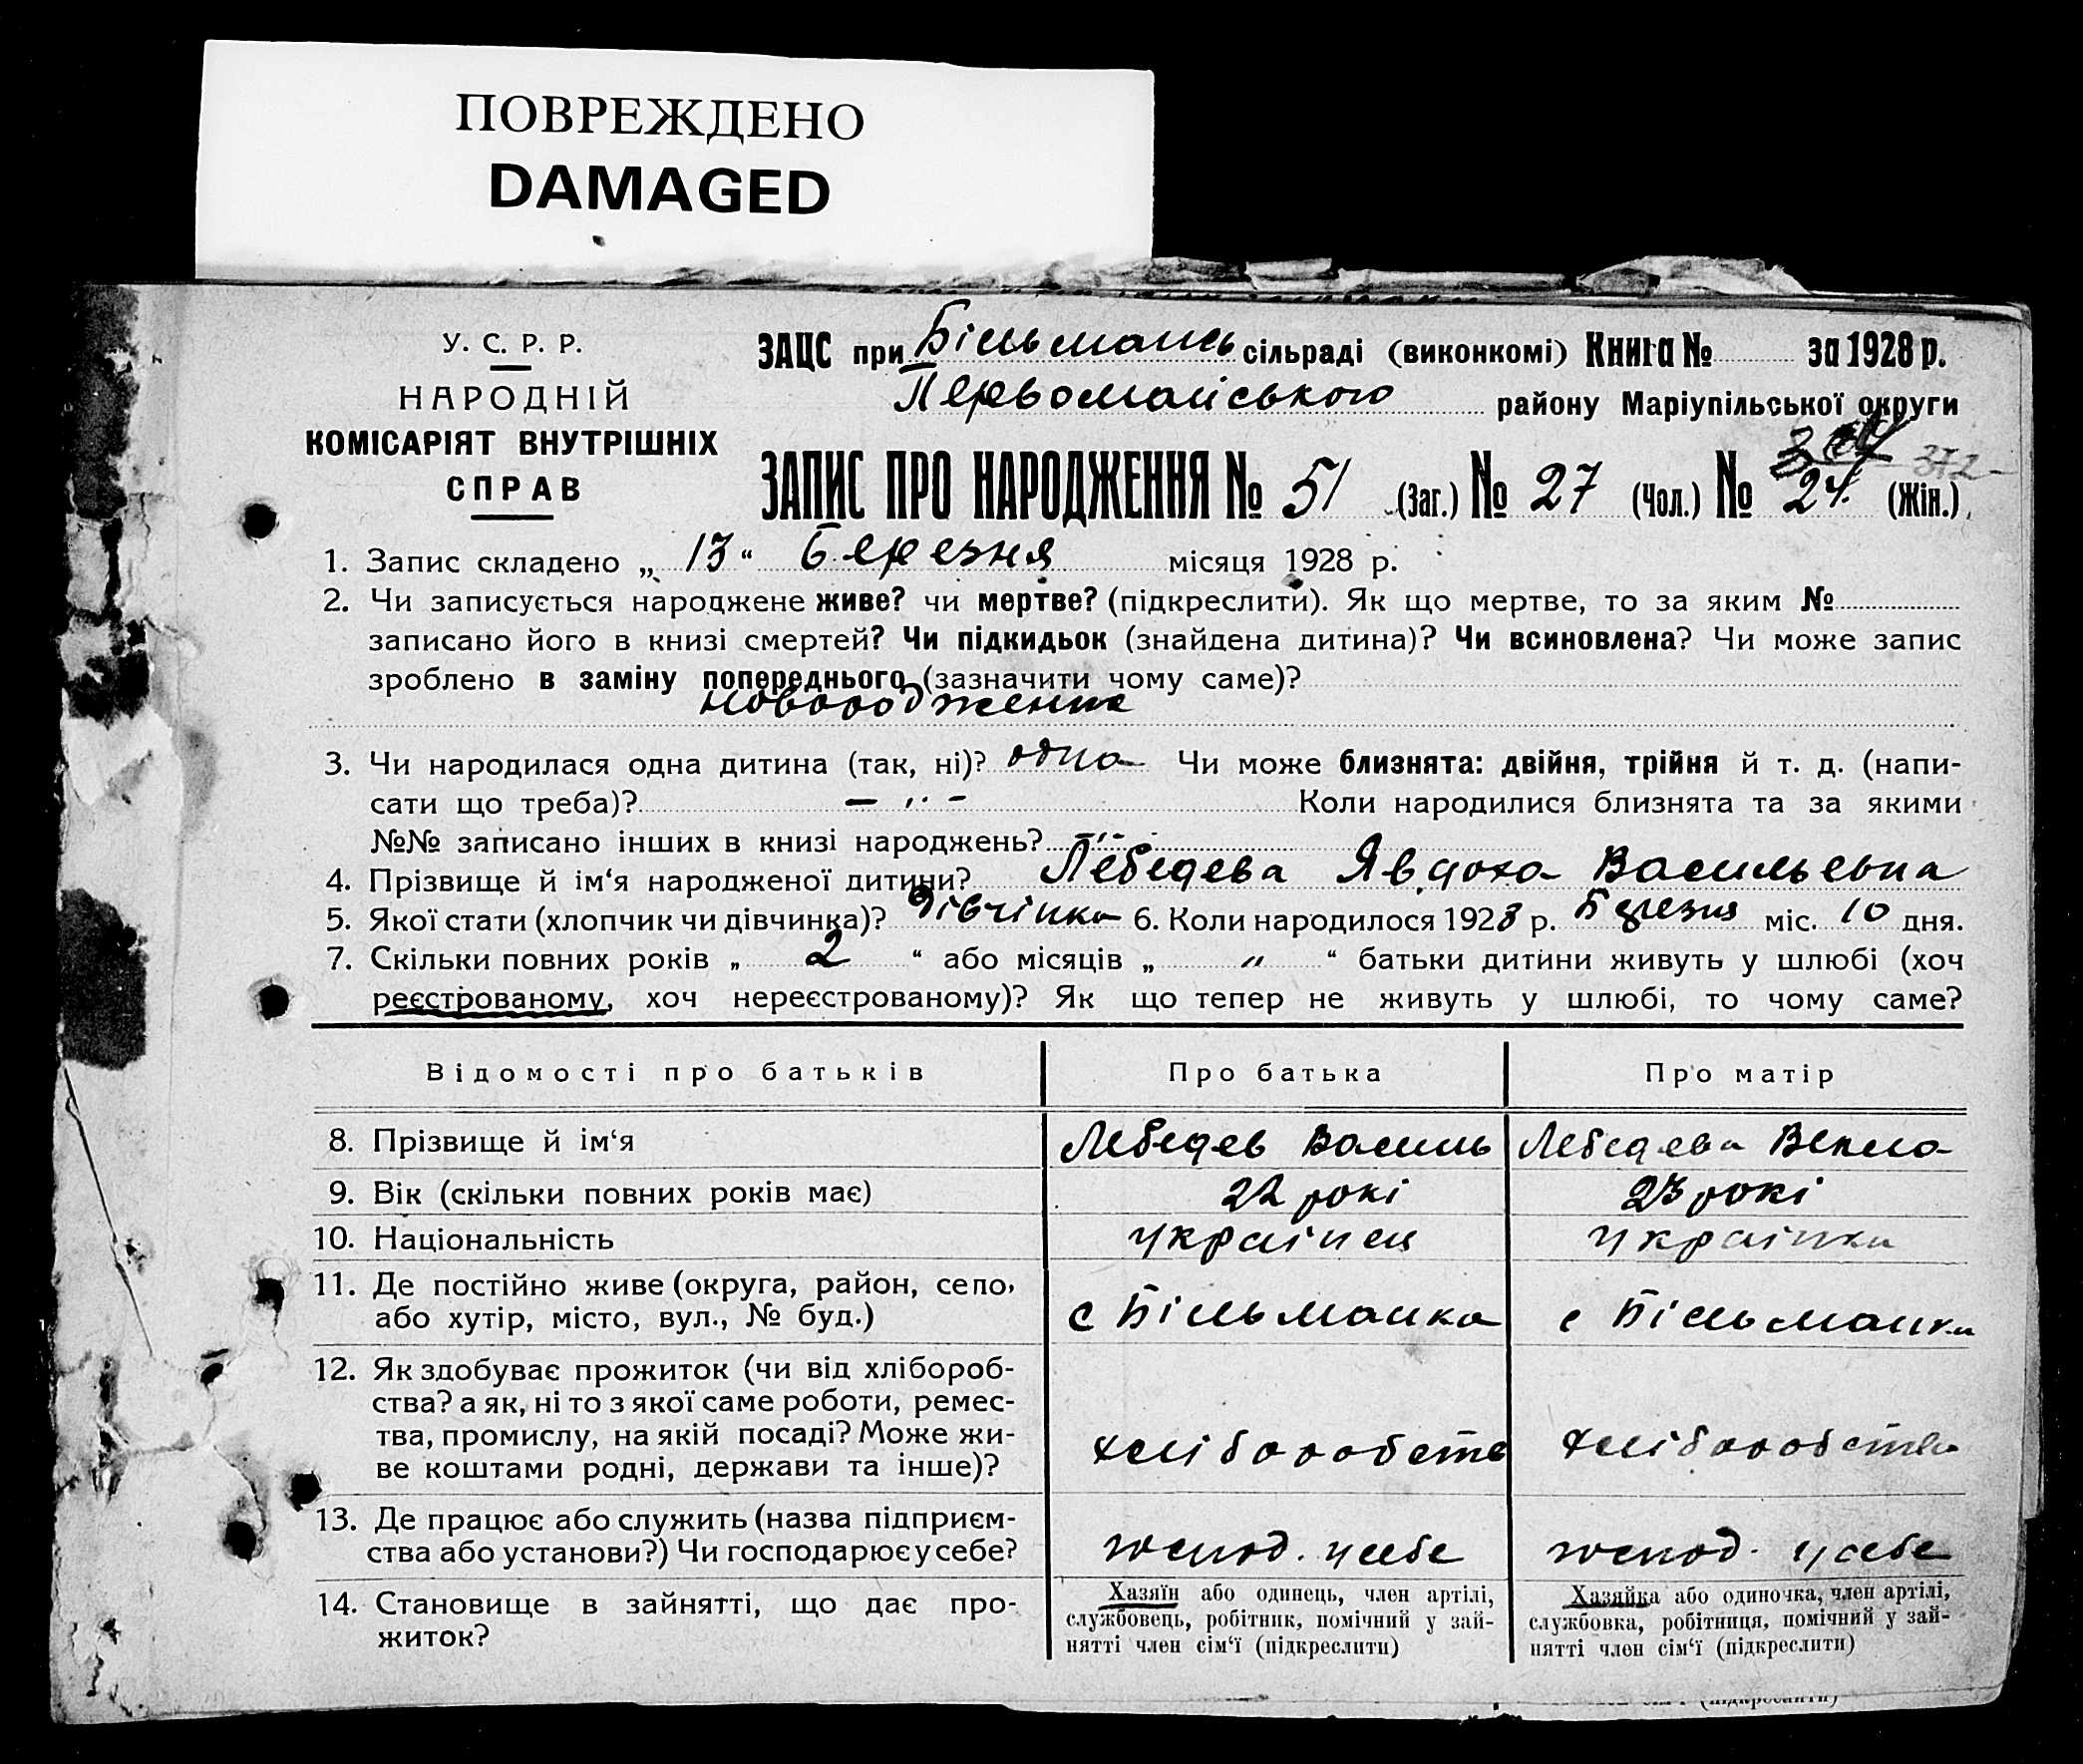 ПОВРЕЖДЕНО
DAMAGED
У. С. Р. Р.
НАРОДНІЙ
КОМІСАРІЯТ ВНУТРІШНІХ
СПРАВ
ЗАЦС при Більмансь сільраді (виконкомі) Книга № за 1928 р.
Первомайського району Маріупільської округи
372
ЗАПИС ПРО НАРОДЖЕННЯ № 51 (Заг.) № 27 (Чол.) № 24 (Жін.)
1. Запис складено „ 13 “ березня місяця 1928 р.
2. Чи записується народжене живе? чи мертве? (підкреслити). Як що мертве, то за яким №
записано його в книзі смертей? Чи підкидьок (знайдена дитина)? Чи всиновлена? Чи може запис
зроблено в заміну попереднього (зазначити чому саме)?
новородженне
3. Чи народилася одна дитина (так, ні)? одна Чи може близнята: двійня, трійня й т. д. (напи-
сати що треба)? — „ — Коли народилися близнята та за якими
№№ записано інших в книзі народжень? — „ —
4. Прізвище й ім‘я народженої дитини? Лебедева Явдоха Васильевна
5. Якої стати (хлопчик чи дівчинка)? Дівчінка 6. Коли народилося 1928 р. Березня міс. 10 дня.
7. Скільки повних років „ 2 “ або місяців „ „ “ батьки дитини живуть у шлюбі (хоч
реєстрованому, хоч нереєстрованому)? Як що тепер не живуть у шлюбі, то чому саме?
Відомості про батьків Про батька Про матір
8. Прізвище й ім‘я Лебедев Василь Лебедева
9. Вік (скільки повних років має) 22 рокі 23 рокі
10. Національність Українец Українка
11. Де постійно живе (округа, район, село,
або хутір, місто, вул., № буд.) с Більманка с Більманка
12. Як здобуває прожиток (чи від хлібороб-
ства? а як, ні то з якої саме роботи, ремес-
тва, промислу, на якій посаді? Може жи-
ве коштами родні, держави та інше)? хліборобств хліборобство
13. Де працює або служить (назва підприєм-
ства або установи?) Чи господарює у себе? господ. у себе господ. у себе
14. Становище в зайнятті, що дає про-
житок?
Хазяїн або одинець, член артілі,
службовець, робітник, помічний у зай-
нятті член сім‘ї (підкреслити)
Хазяйка або одиночка, член артілі,
службовка, робітниця, помічний у зай-
нятті член сім‘ї (підкреслити)